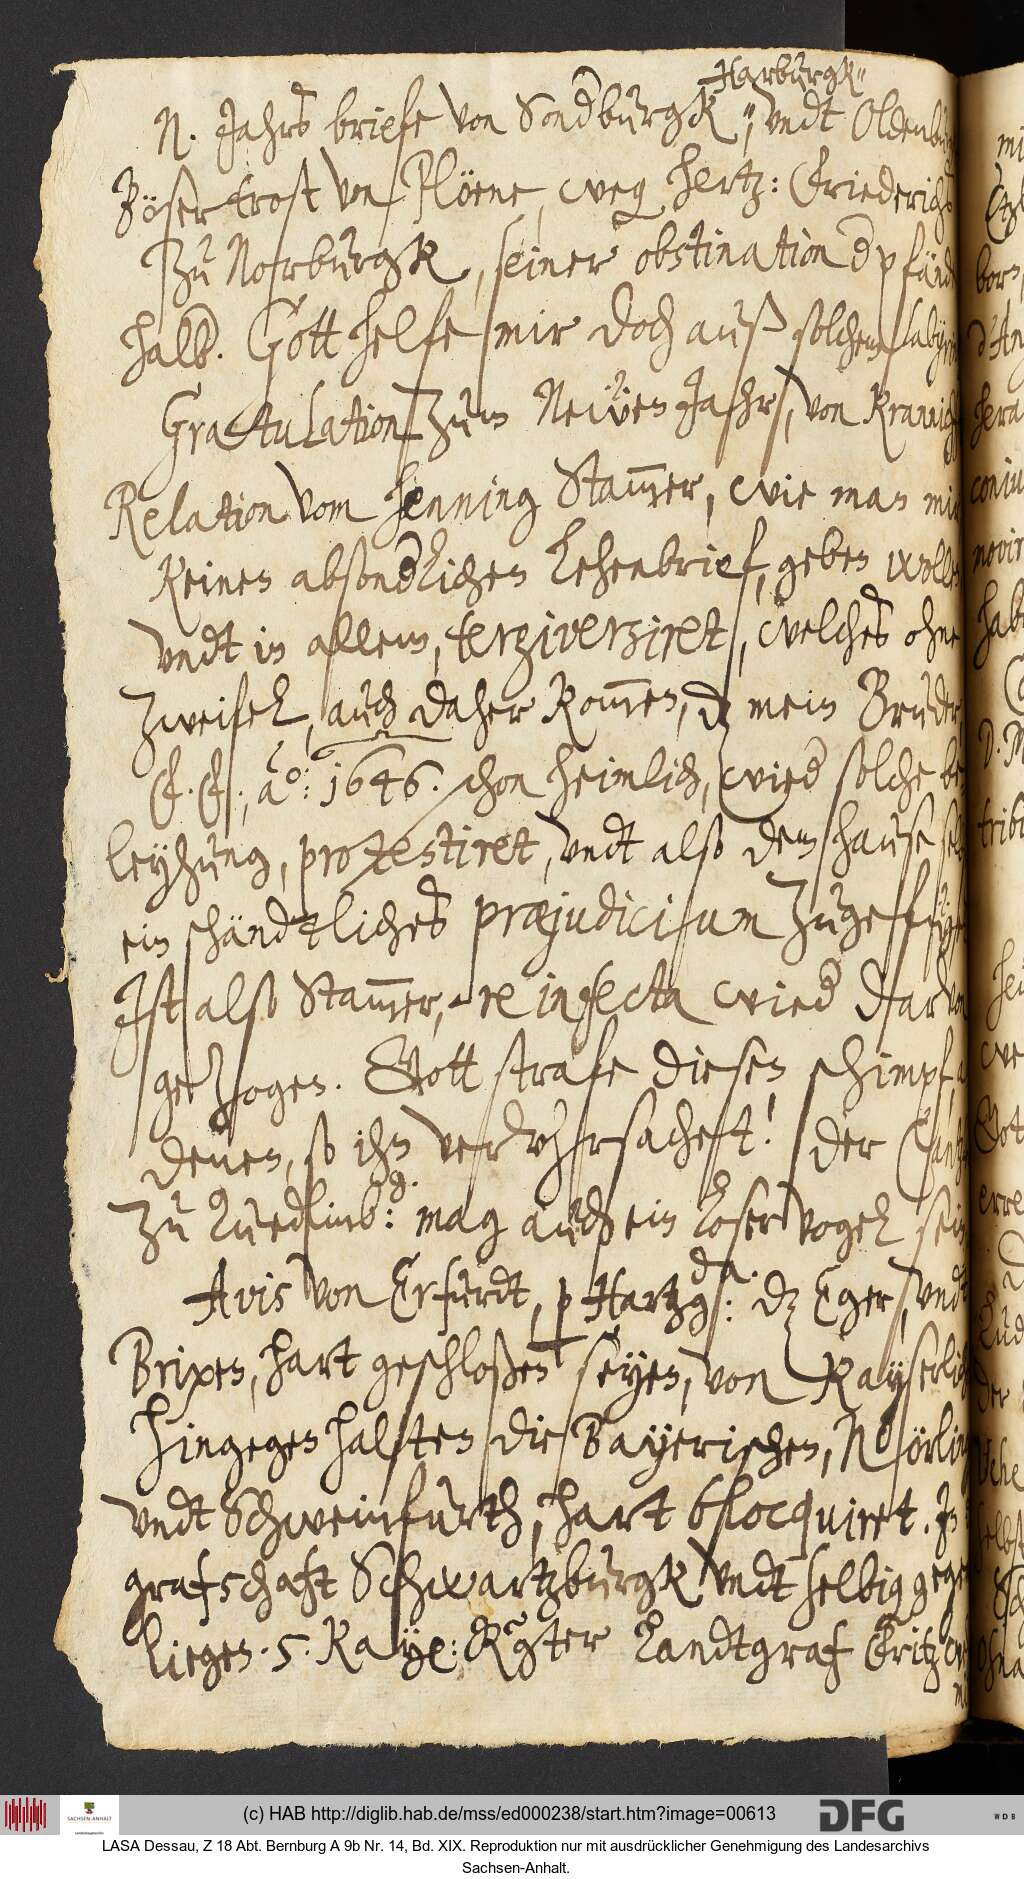 Harburgk"
N. Jahrs briefe von Sondburgk", vndt Oldenbu
Böser trost von Plöene, weg hertz: Friederichs
zu Norburgk, seiner obstination d pfände
halb. Gott helfe mir doch auß solchem labyri
Gratulation zum Neẅen Jahr, von Krannich
Relation vom Henning Stam̅er, wie man mir
keinen absondlichen Lehenbrief, geben wolle
vndt in allem, terziverziret, welches ohne
zweifel, auch daher kom̅en, dz mein Bruder
F. F., ao: 1646. schon heimlich, wied solche be
leyhung, protestiret, vndt also dem hause sel
ein schändtliches præjudicium zugefüge
Ist also Stam̅er, re infecta wied dar von
gezogen. Gott strafe diesen schimpf, a
denen, so ihn veruhrsacht! der Cantz
zu Quedlinb: mag auch ein loser vogel sein
Avis von Erfurdt, p Hartzg: da. dz Eger, vndt
Brixen, hart geschloßen seyen, von Kayserlich
Hingegen halten die Bayerischen, Nörling
vndt Schweinfurth, hart blocquiret. In d
grafschaft Schwartzburgk vndt selbig gegen
liegen. 5. Kaye: Rgter Landtgraf Fritz we
mi
(c) HAB http://diglib.hab.de/mss/ed000238/start.htm?image=00613
SACHSEN-ANHALT
DFG
WDB
LASA Dessau, Z 18 Abt. Bernburg A 9b Nr. 14, Bd. XIX. Reproduktion nur mit ausdrücklicher Genehmigung des Landesarchivs
Sachsen-Anhalt.